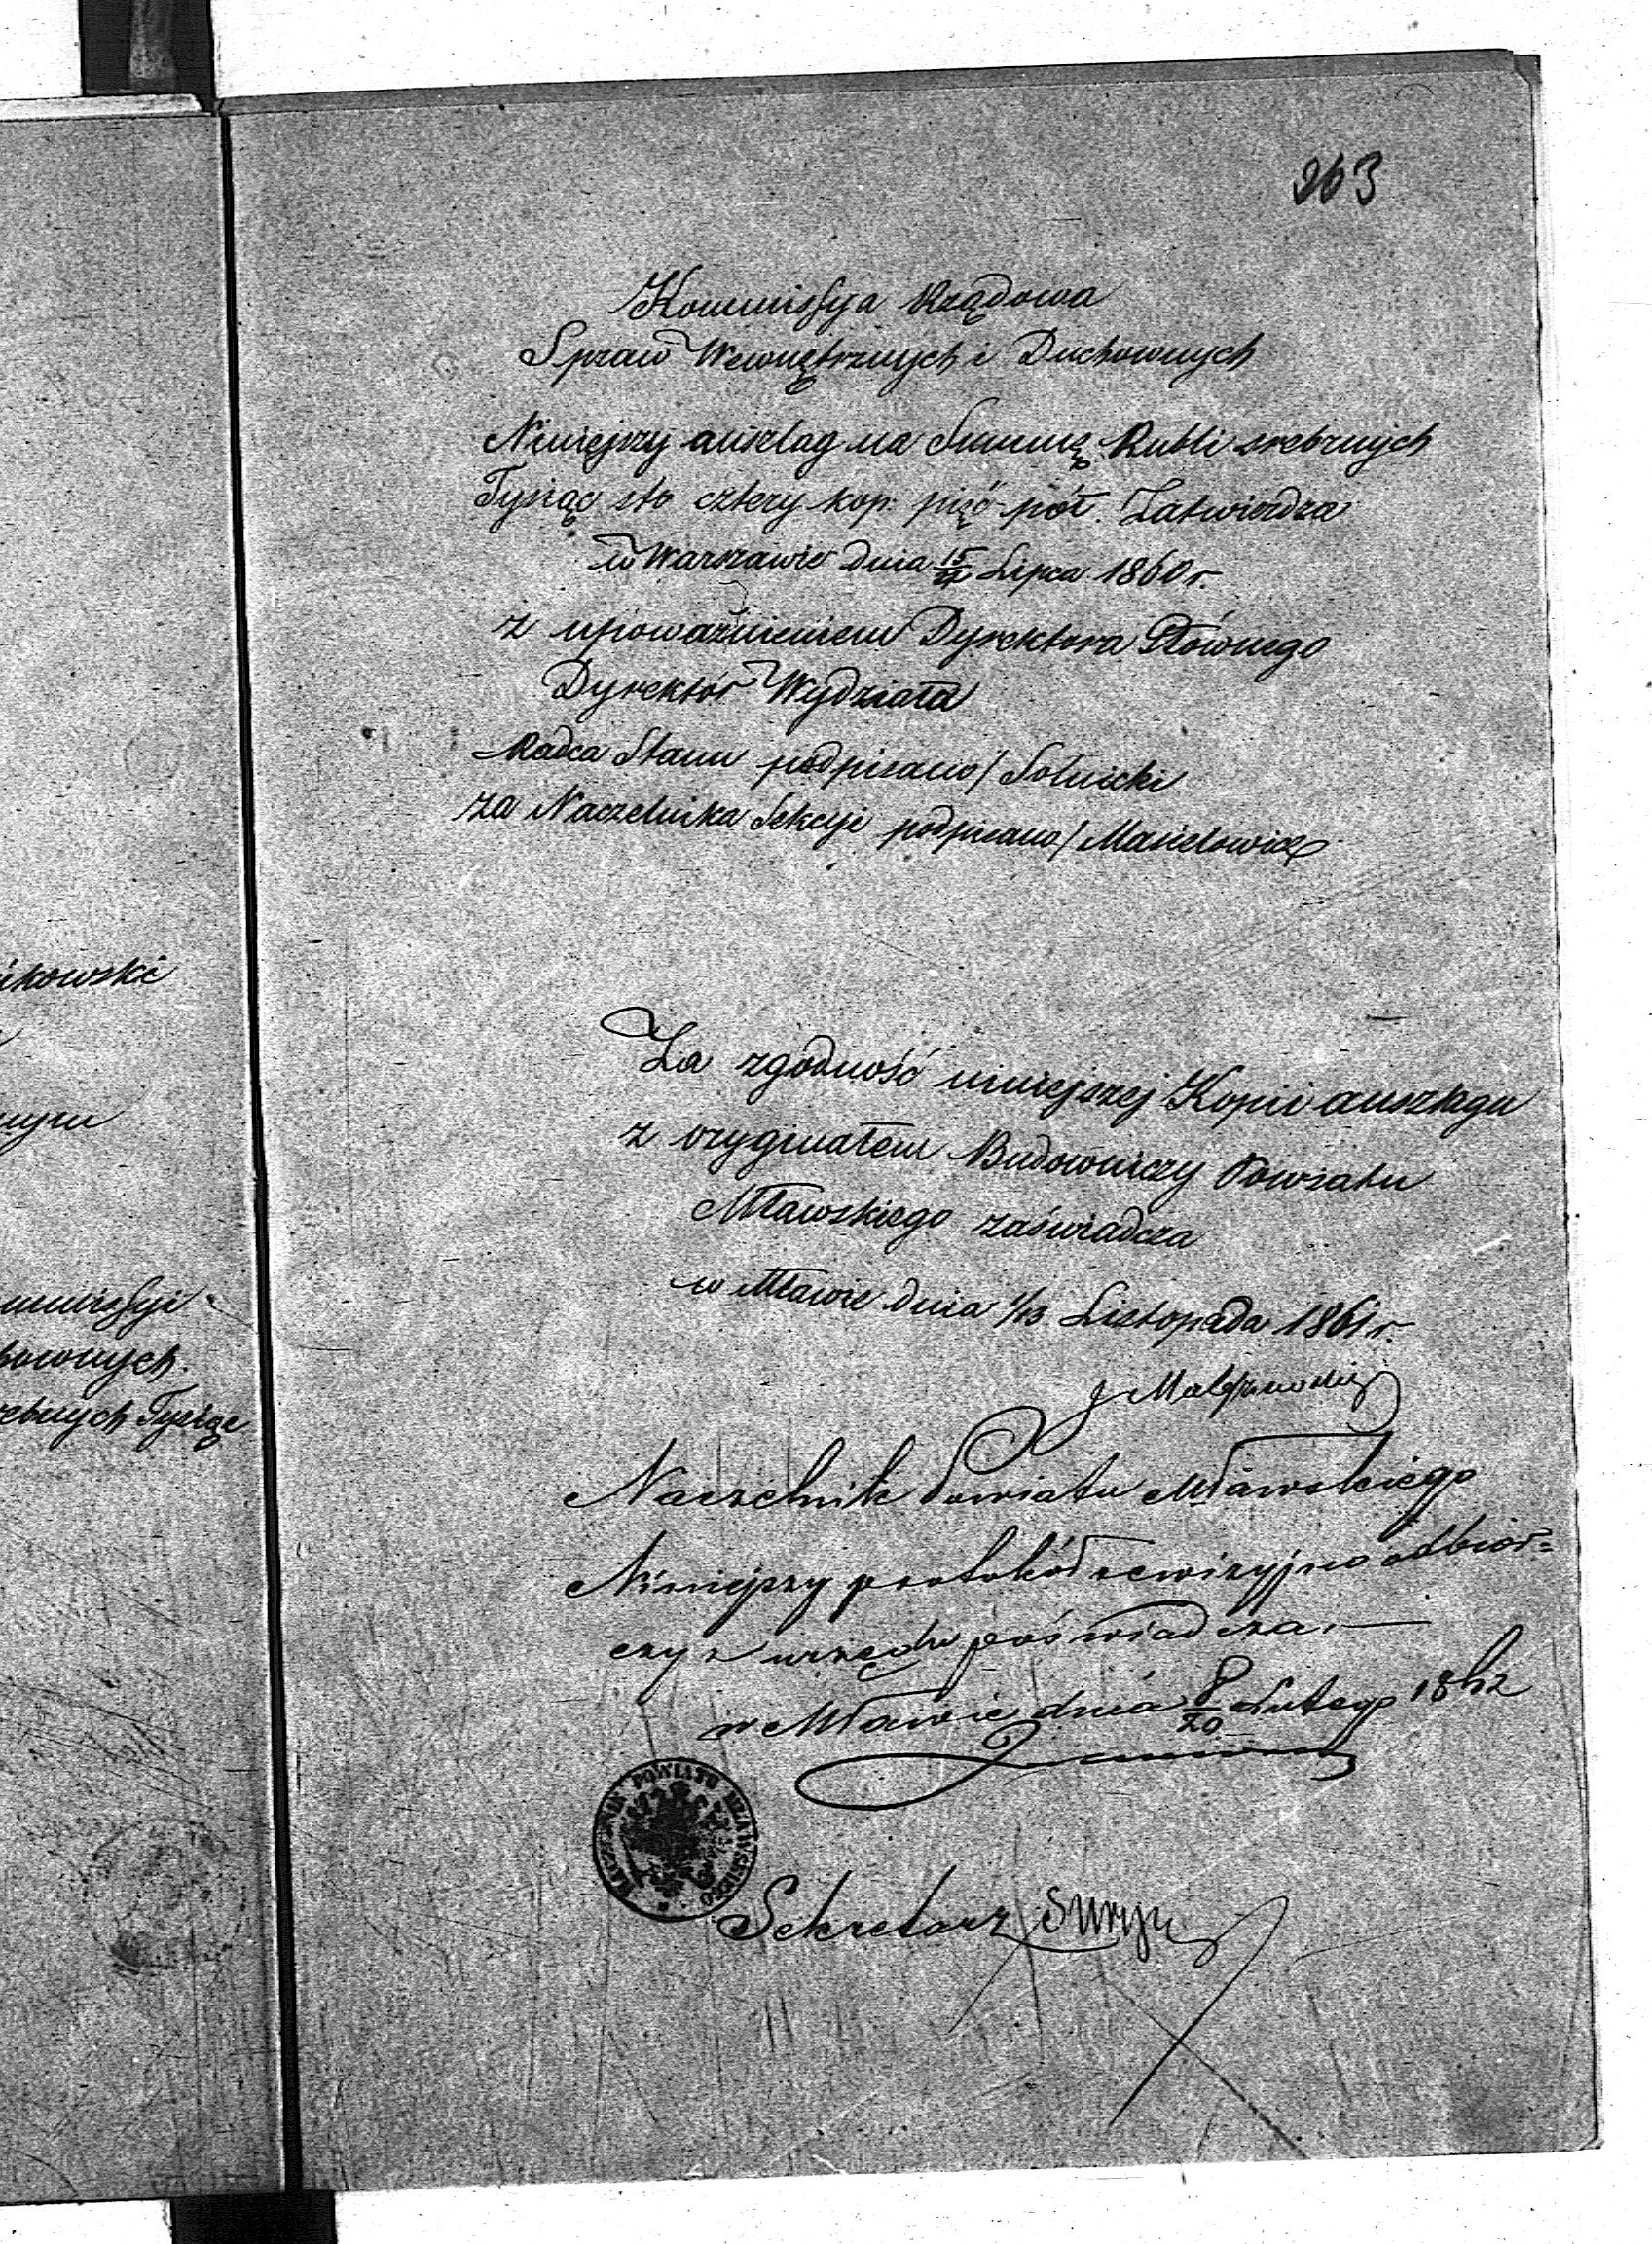 263
Kommissyja Rządowa
Spraw Wewnętrznych i Duchownych
Niniejszy anszlag na Summę Rubli srebrnych
Tysiąc sto cztery kop: pięć-pół. Zatwierdza
w Warszawie dnia 15/27 Lipca 1860 r.
z upoważnieniem Dyrektora Głównego
Dyrektór Wydziału
Radca Stanu podpisano/ Solnicki
za Naczelnika Sekcyi podpisano/
Za zgodność niniejszej Kopii anszlagu
z oryginałem Budowniczy Powiatu
Mławskiego zaświadcza
w Mławie dnia 1/13 Listopada 1861 r.
Naczelnik Powiatu Mławskiego
Niniejszy protokół rewizyjno odbior=
czy z urzędu poświadcza.
w Mławie dnia 8/20 Lutego 1862
NACZELNIK POWIATU MŁAWSKIEGO
Sekretarz
ikowski
nym
mmissyi
hownych.
rebnych Tysiąc